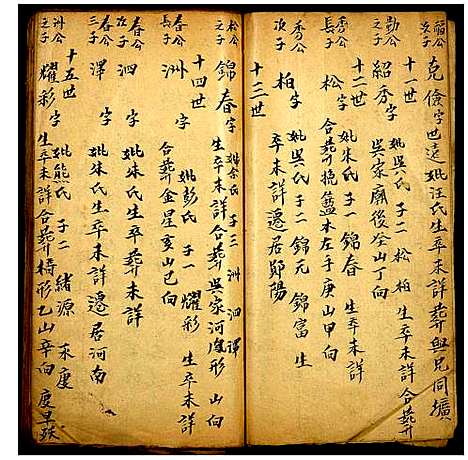 福公次子
克儉字世遠妣汪氏生卒未詳葬與兄同壙
十一世
勤公之子
紹秀字 妣吳氏 子二 松 柏 生卒未詳合葬
吳家廟後 山丁向
十二世
秀公長子
松 字 妣朱氏 子一 錦春 生卒未詳
合葬 籃木左手庚山甲向
秀公次子
柏 字 妣吳氏 子二 錦元 錦富 生
卒未詳遷居鄖陽
十三世
松公之子
錦春 字 妣余氏 子三 洲 泗 澤
生卒未詳合葬吳家河 形 山 向
十四世
春公長子
洲 字 妣彭氏 子一 耀彩 生卒未詳
合葬金星亥山巳向
春公次子
泗 字 妣朱氏生卒葬未詳
春公三子
澤 字 妣朱氏生卒未詳遷居河南
十五世
洲公之子
耀彩 字 妣熊氏 子二 緒源 永慶
生卒未詳合葬椅形乙山辛向 慶早歿